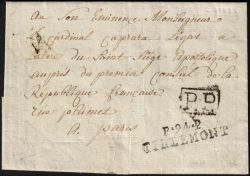 A Son Eminence Monseigneur
Le Cardinal Caprara Légat a
latere du Saint Siège Apostolique
auprès du premier Consul de la
République française
rue plumet
A paris
P.P.
P.94.P.
TIRLEMONT